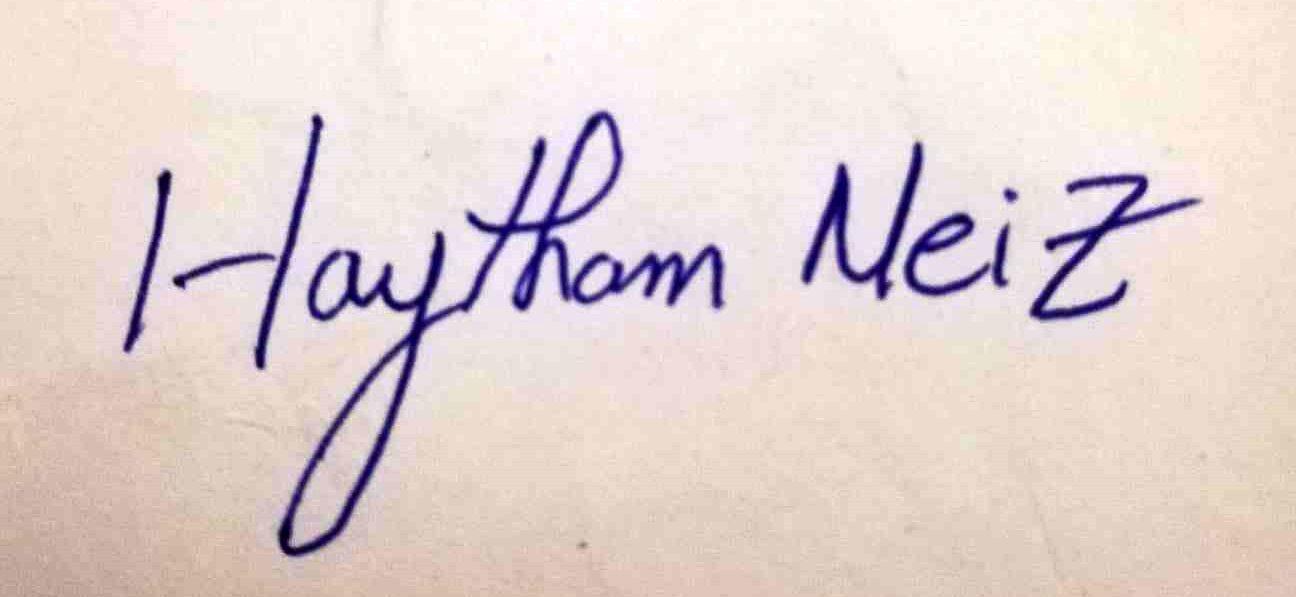 Haytham Neiz